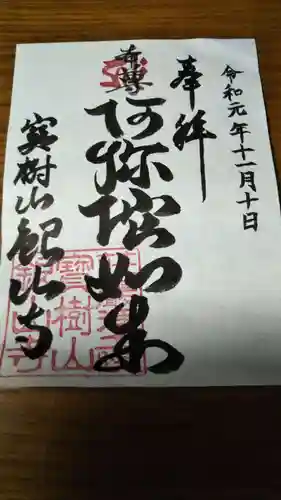 令和元年十一月十日
奉拝
本尊
阿弥陀如来
宝樹山観山寺
寶樹山